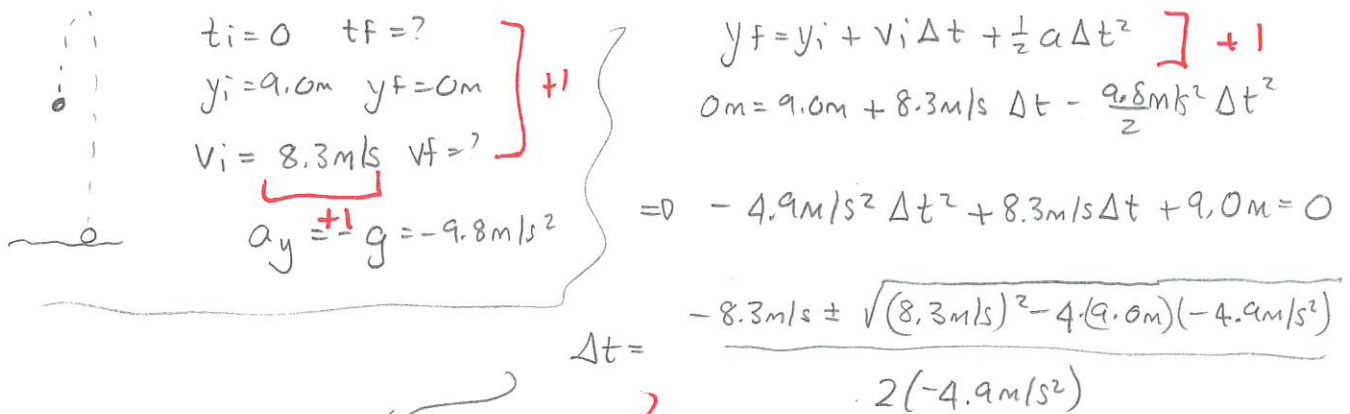 ti=0 tf=?
yi=9.0m yf=0m
+1
Vi= 8.3m/s Vf=?
+1
ay=-g=-9.8m/s²
yf=yi+viΔt+½aΔt²
+1
0m=9.0m+8.3m/s Δt - 9.8m/s²/2 Δt²
⇒ -4.9m/s² Δt²+8.3m/sΔt+9.0m=0
Δt= (-8.3m/s ± √((8.3m/s)²-4·(9.0m)(-4.9m/s²))) / 2(-4.9m/s²)